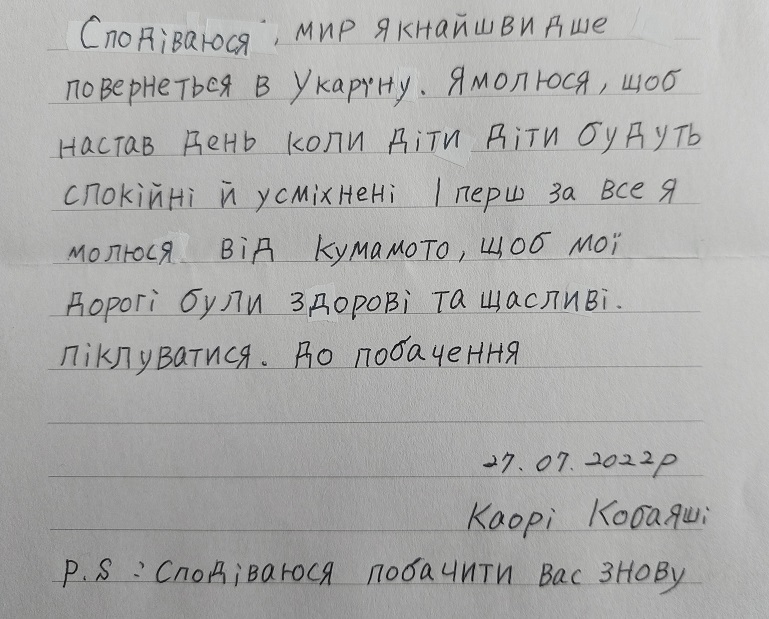 Сподіваюся, мир якнайшвидше
повернеться в Укаріну. Я молюся, щоб
настав день коли діти діти будуть
спокійні й усміхнені І перш за все я
молюся від Кумамото, щоб мої
дорогі були здорові та щасливі.
піклуватися. До побачення
27.07.2022р
Каорі Кобаяші
P.S : Сподіваюся побачити вас знову